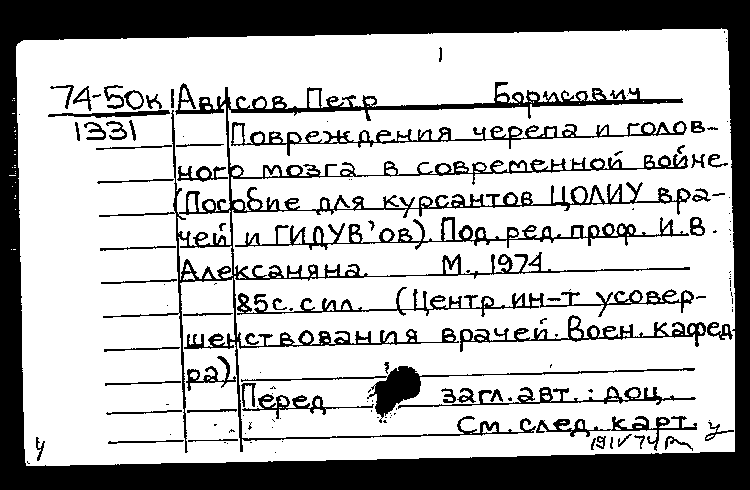 1
74-50к Ависов, Петр Борисович
1331 Повреждения черепа и голов-
ного мозга в современной войне.
(Пособие для курсантов ЦОЛИУ вра-
чей и ГИДУВ'ов). Под. ред. проф. И.В.
Алексаняна. М., 1974.
85с. с ил. (Центр. ин-т усовер-
шенствования врачей. Воен. кафед-
ра).
Перед загл. авт.: доц.
См. след. карт.
у 19IV74 у